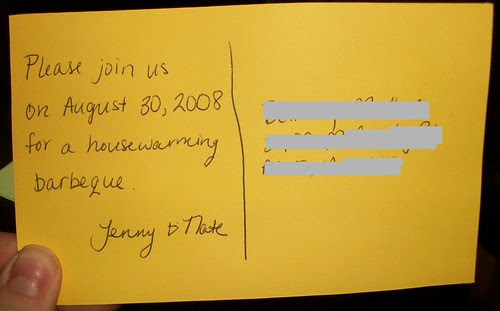 Please join us
on August 30, 2008
for a housewarming
barbeque.
Jenny & Nate